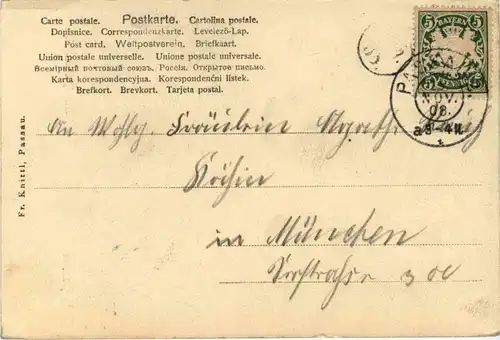 Carte postale. Postkarte. Cartolina postale.
Dopisnice. Correspondenzkarte. Levelező-Lap.
Post card. Weltpostverein. Briefkaart.
Union postale universelle. Unione postale universale.
Всемірный почтовый союзъ. Россія. Открытое письмо.
Karta korespondencyjna. Korespondenční lístek.
Brefkort. Brevkort. Tarjeta postal.
5 BAYERN 5
5 PFENNIG 5
PASSAU
NOV.
08.
Fr. Knittl, Passau.
An Wohlg. Fräulein Agathe
Köchin
in München